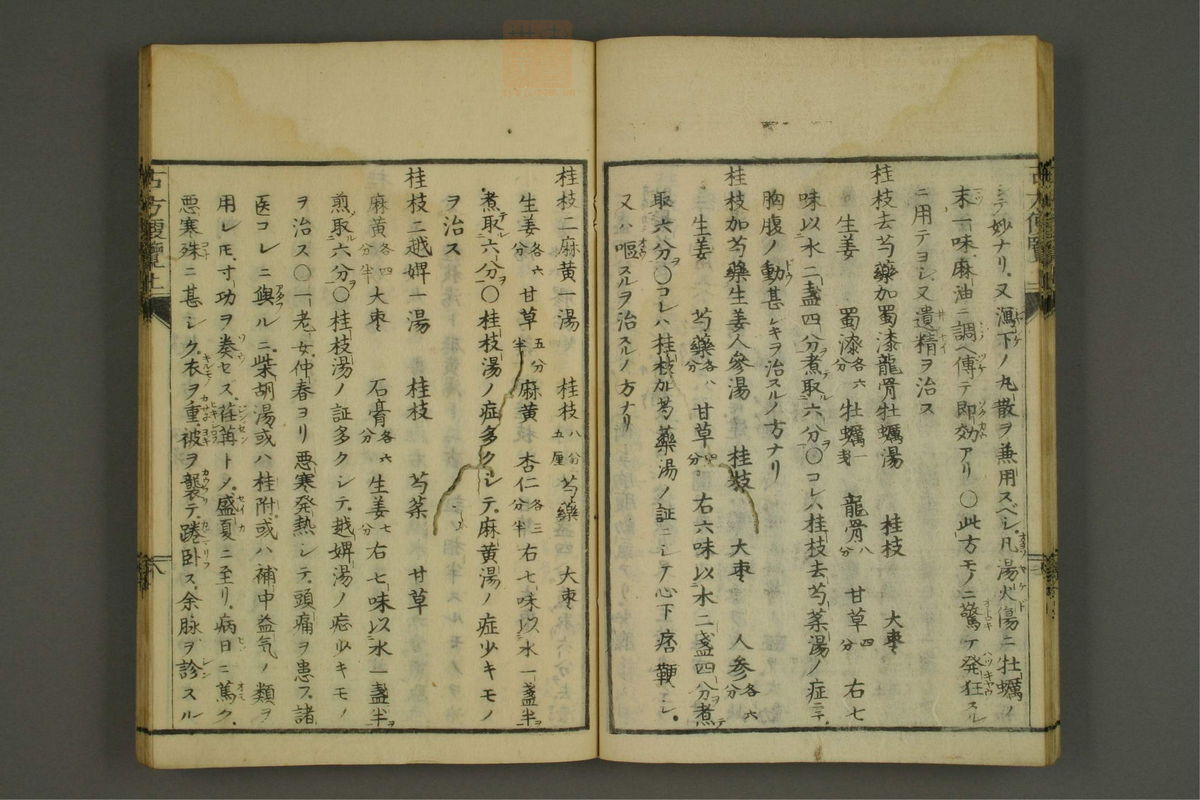 ニテ妙ナリ又瀉下ノ丸散ヲ兼用スベシ凡湯火傷ニ牡蠣ノ
末一味麻油ニ調ヘ傅テ即効アリ○此方モノニ驚ケ発狂スル
ニ用テヨシ又遺精ヲ治ス
桂枝去芍藥加蜀漆龍骨牡蠣湯 桂枝 大棗
生姜 蜀漆各六分 牡蠣一戔 龍骨八分 甘草四分 右七
味以水二盞四分煮取六分○コレハ桂枝去芍薬湯ノ症ニテ
胸腹ノ動甚シキヲ治スルノ方ナリ
桂枝加芍藥生姜人參湯 桂枝 大棗 人参各六分
生姜 芍藥各八分 甘草四分 右六味以水二盞四分煮
取六分○コレハ桂枝加芍藥湯ノ証ニシテ心下痞鞕シ
又ハ嘔スルヲ治スルノ方ナリ
古方便覽上
桂枝二麻黄一湯 桂枝八分五厘 芍藥 大棗
生姜各六分 甘草五分半 麻黄 杏仁各三分半 右七味以水一盞半
煮取六分○桂枝湯ノ症多クシテ麻黄湯ノ症少キモノ
ヲ治ス
桂枝二越婢一湯 桂枝 芍薬 甘草
麻黄各四分半 大棗 石膏各六分 生姜七分 右七味以水一盞半
煎取六分○桂枝湯ノ証多クシテ越婢湯ノ症少キモノ
ヲ治ス○一老女仲春ヨリ悪寒発熱シテ頭痛ヲ患フ諸
医コレニ與ルニ柴胡湯或ハ桂附或ハ補中益気ノ類ヲ
用レ𪜈寸功ヲ奏セス荏苒トメ盛夏ニ至リ病日ニ篤ク
悪寒殊ニ甚シク衣ヲ重被ヲ襲テ踡卧ス余脉ヲ診スル
古方便覽上
八